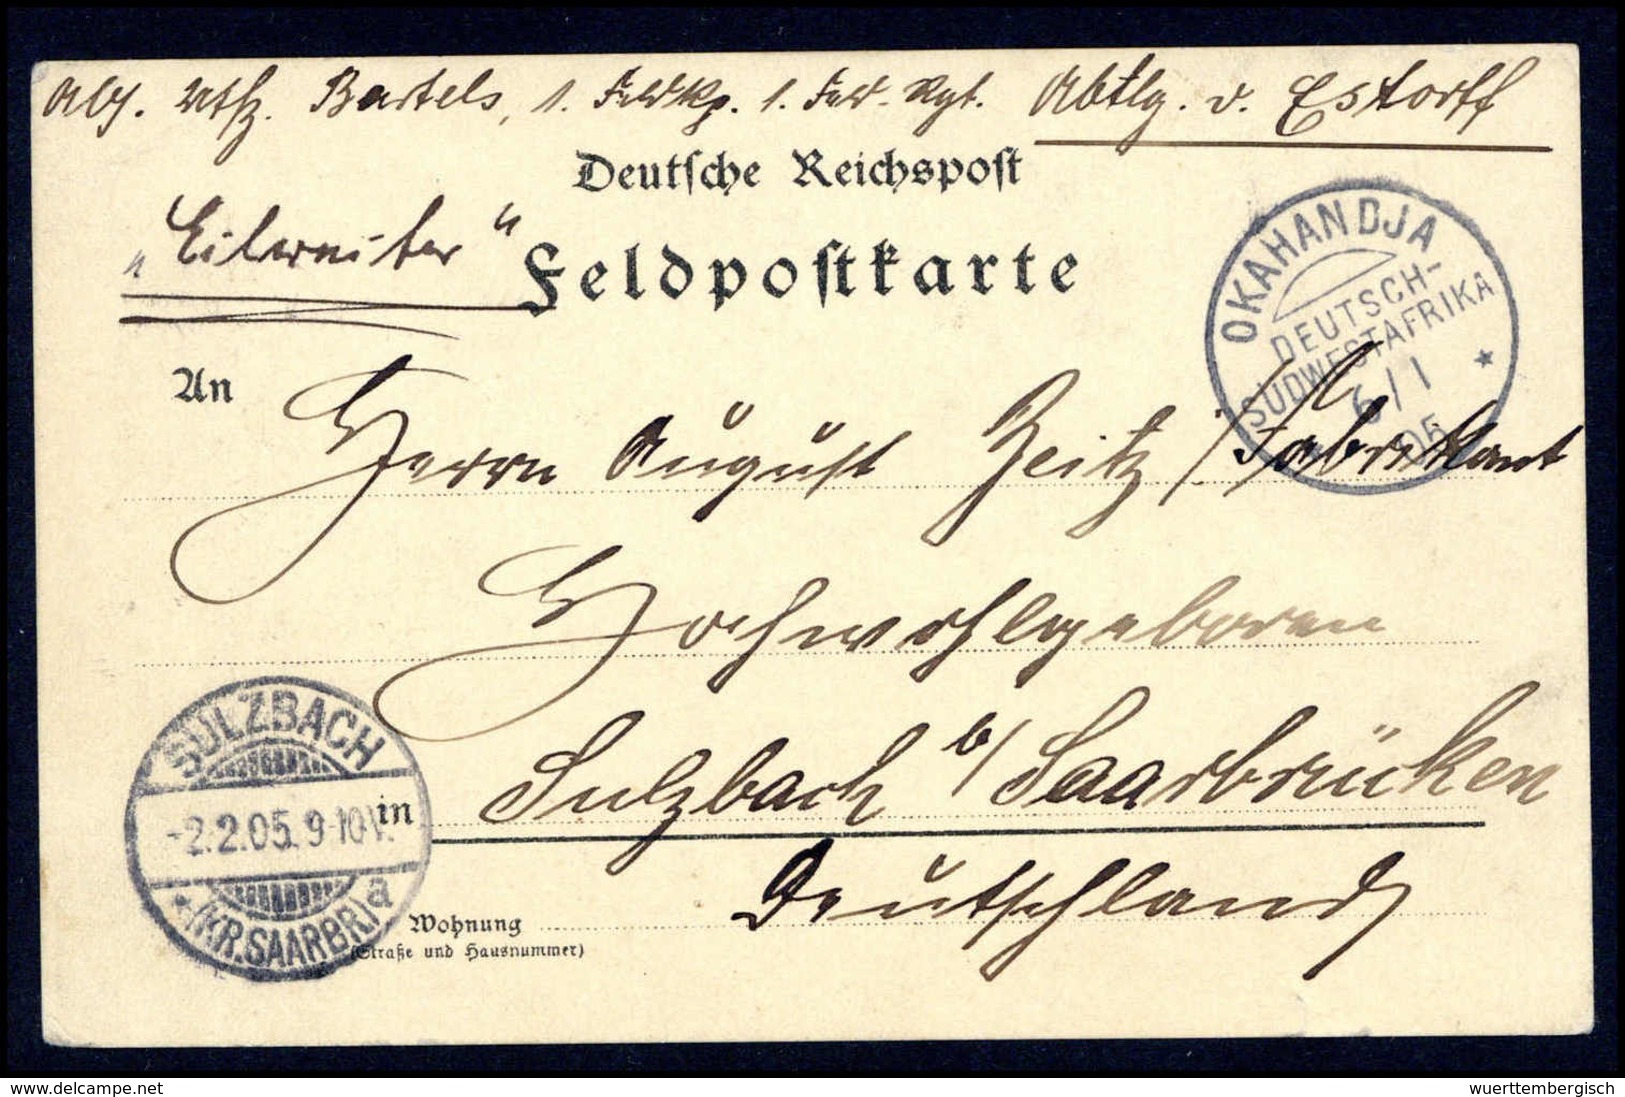 Abs. Utfz. Bartels, 1. Feldkp. 1. Feld-Rgt. Abtlg. v. Estorff
Deutsche Reichspost
„Eilreiter“
Feldpostkarte
OKAHANDJA
DEUTSCH-
SÜDWESTAFRIKA
6/1
05
*
An
Herrn August Zeitz / Fabrikant
Hochwohlgeboren
SULZBACH
-2.2.05. 9-10V.
* (KR.SAARBR) a
in Sulzbach b/ Saarbrücken
Deutschland
Wohnung
(Straße und Hausnummer)
www.delcampe.net
wuerttembergisch